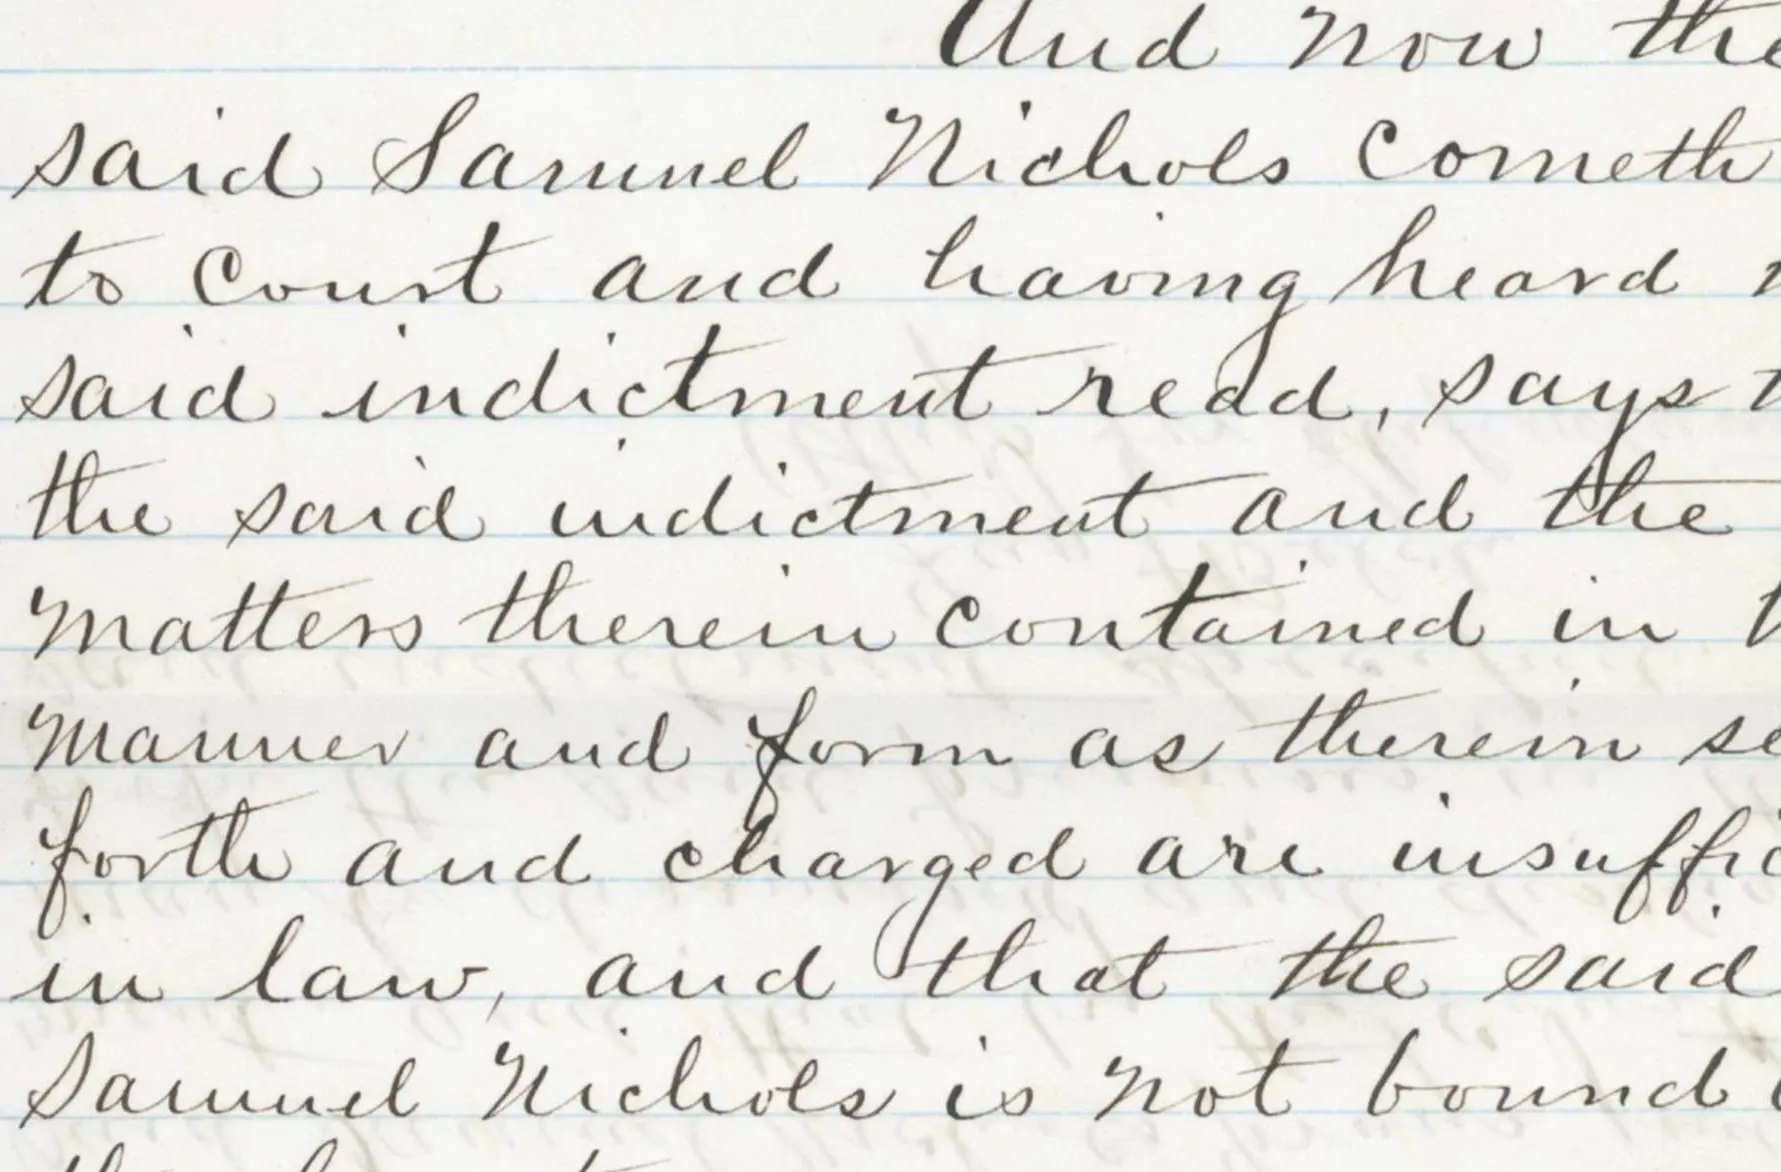 And now the
said Samuel Nichols cometh
to Court and having heard
said indictment read, says
the said indictment and the
matters therein contained in
manner and form as therein se
forth and charged are insuffic
in law, and that the said
Samuel Nichols is not bound